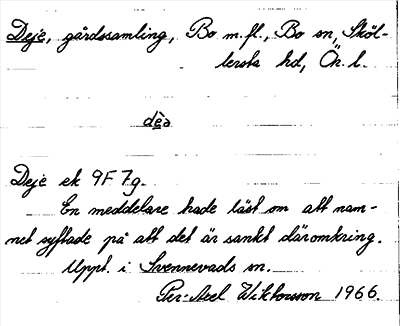 Deje, gårdssamling, Bo m.fl., Bo sn, Sköl-
lersta hd, Ön. l.
dèa
Deje ek 9F 7g.
En meddelare hade läst om att nam-
net syftade på att det är sankt däromkring.
Uppt. i Svennevads sn.
Per-Axel Wiktorsson 1966.